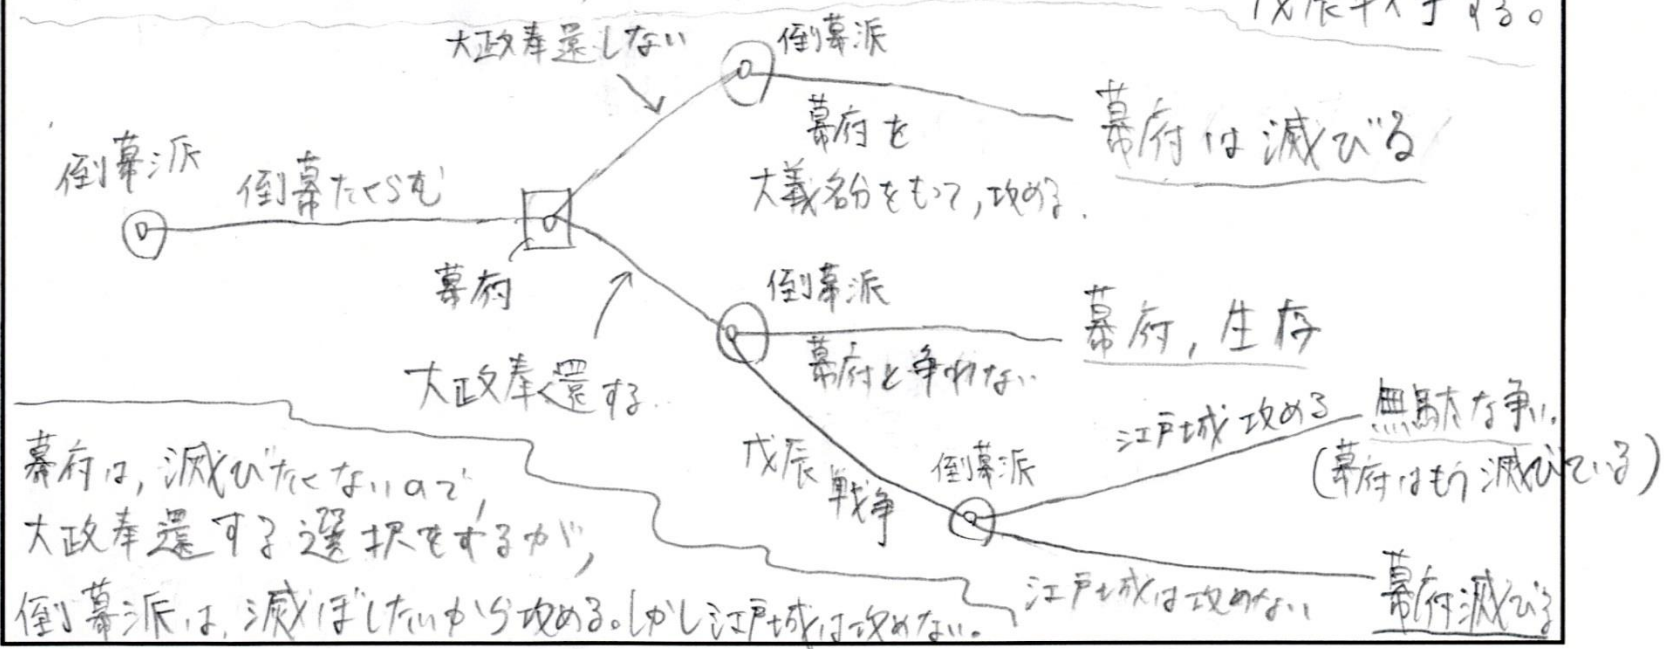 戊辰
する。
大政奉還しない
倒幕派
幕府を
大義名分をもって,攻める.
幕府は滅びる
倒幕派
倒幕たくらむ
幕府
大政奉還する
倒幕派
幕府と争わない
幕府,生存
戊辰
戦争
倒幕派
江戸城攻める
無駄な争い
(幕府はもう滅びている)
江戸城は攻めない
幕府滅びる
幕府は,滅びたくないので,
大政奉還する選択をするが,
倒幕派は,滅ぼしたいから攻める。しかし江戸城は攻めない。